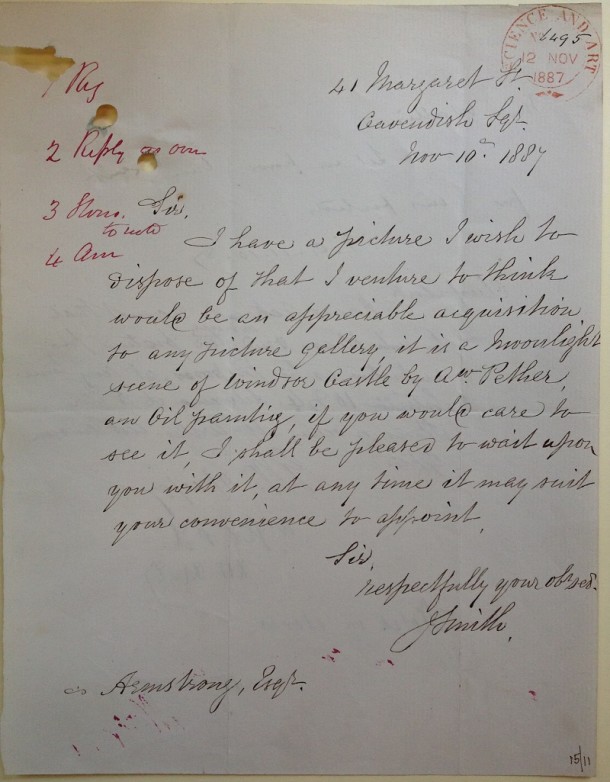 SCIENCE AND ART
6495
12 NOV
1887
41 Margaret St.
Cavendish Sqr.
Nov 10th 1887
1 Reg
2 Reply as
3 
to note
4 Am
Sir,
I have a picture I wish to
dispose of that I venture to think
would be an appreciable acquisition
to any picture gallery, it is a Moonlight
scene of Windsor Castle by Aw. Pether,
an Oil painting, if you would care to
see it, I shall be pleased to wait upon
you with it, at any time it may suit
your convenience to appoint,
Sir,
respectfully your obt. sed.
J Smith.
Armstrong, Esqr.
15/11